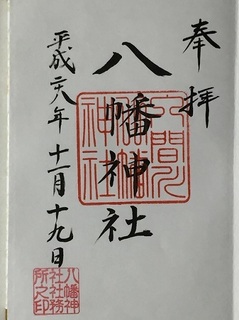 奉拝
八幡神社
平成二八年十一月十九日
文間
八幡
神社
八幡神
社社務
所之印